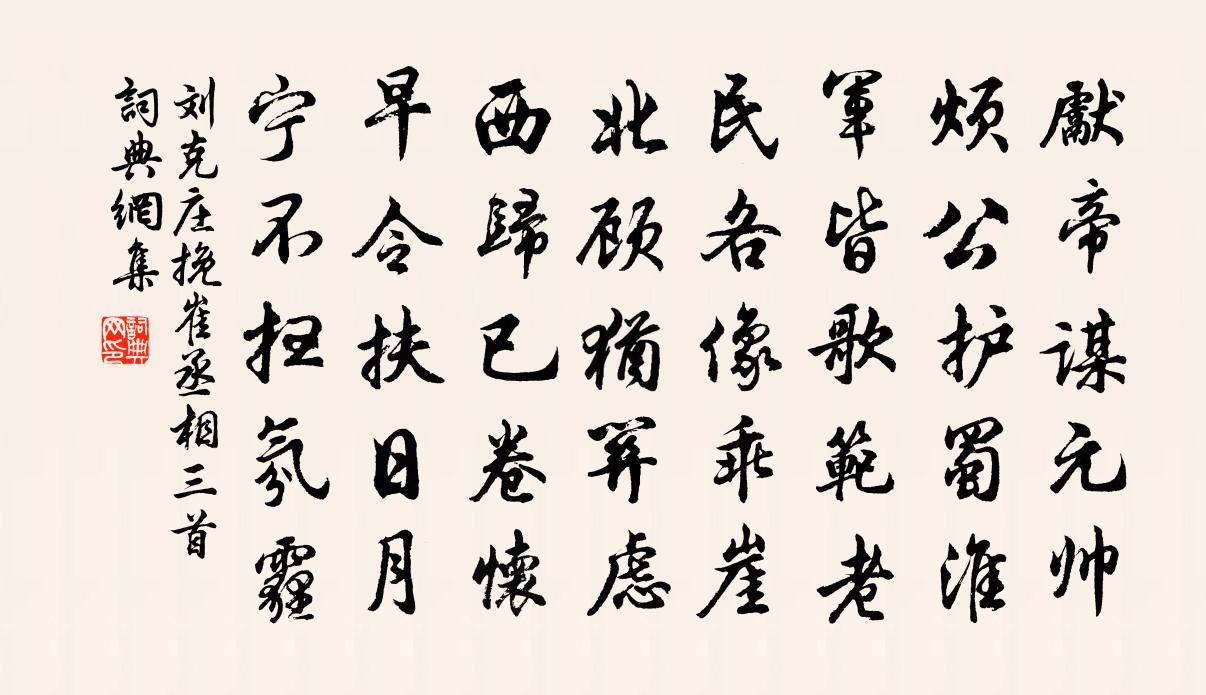 獻帝謀元帅
烦公护蜀淮
军皆歌範老
民各像乖崖
北顾猶開虑
西歸已卷懷
早令扶日月
宁不扫氛霾
刘克庄挽崔丞相三首
詞典網集
詞典网印